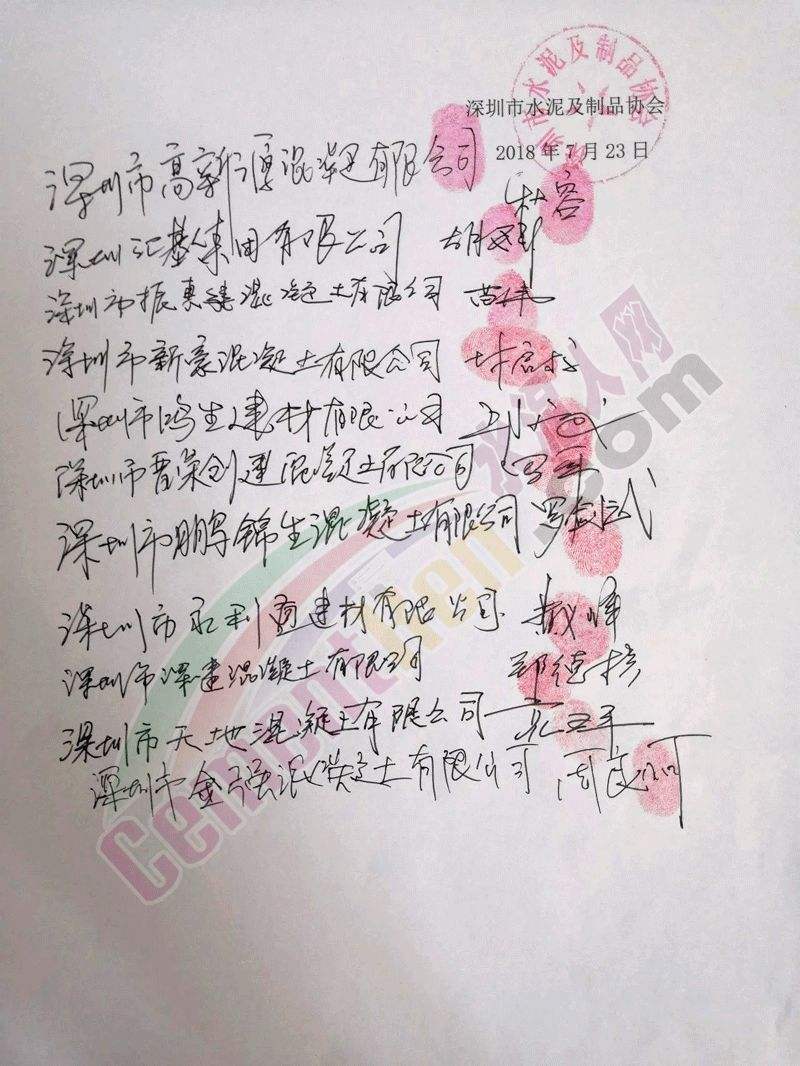 深圳市水泥及制品协会
深圳市水泥及制品协会
2018年7月23日
深圳市高新源混凝土有限公司 杜容
深圳汇基集团有限公司 胡
深圳市振惠建混凝土有限公司
深圳市新豪混凝土有限公司 林启
深圳市鸿生建材有限公司
深圳市晋荣创建混凝土有限公司
深圳市鹏锦生混凝土有限公司 罗
深圳市永利商建材有限公司
深圳市深建混凝土有限公司 郑德
深圳市天地混凝土有限公司
深圳市金强混凝土有限公司 周良河
Cementren.com
水泥人网